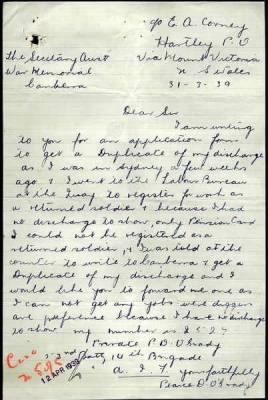 c/o E. A. Corney
Hartley P.O
Via Mount Victoria
N S Wales
31-3-39
The Secretary Aust
War Memorial
Canberra
Dear Sir
I am writing
to you for an application form
to get a Duplicate of my discharge
as I was in Sydney a few weeks
ago & I went to the Labour Bureau
at the Quay to register for work as
a returned soldier & because I had
no discharge to show, only Pension Card
I could not be registered as a
returned soldier, I was told at the
counter to write to Canberra & get a
Duplicate of my discharge and I
would like you to foward me one as
I can not get any jobs were diggers
are preference because I have no discharge
to show my number is 2525
Private P. D. O'Grady
Batt, 14th Brigade
A. I. F.
yours faithfully
Pearce D. O'Grady
12 APR 1939